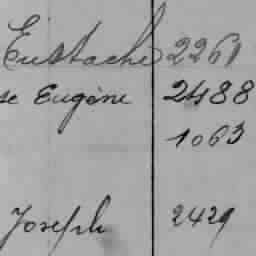 Eustache 2261
se Eugène 2488
1063
Joseph 2429